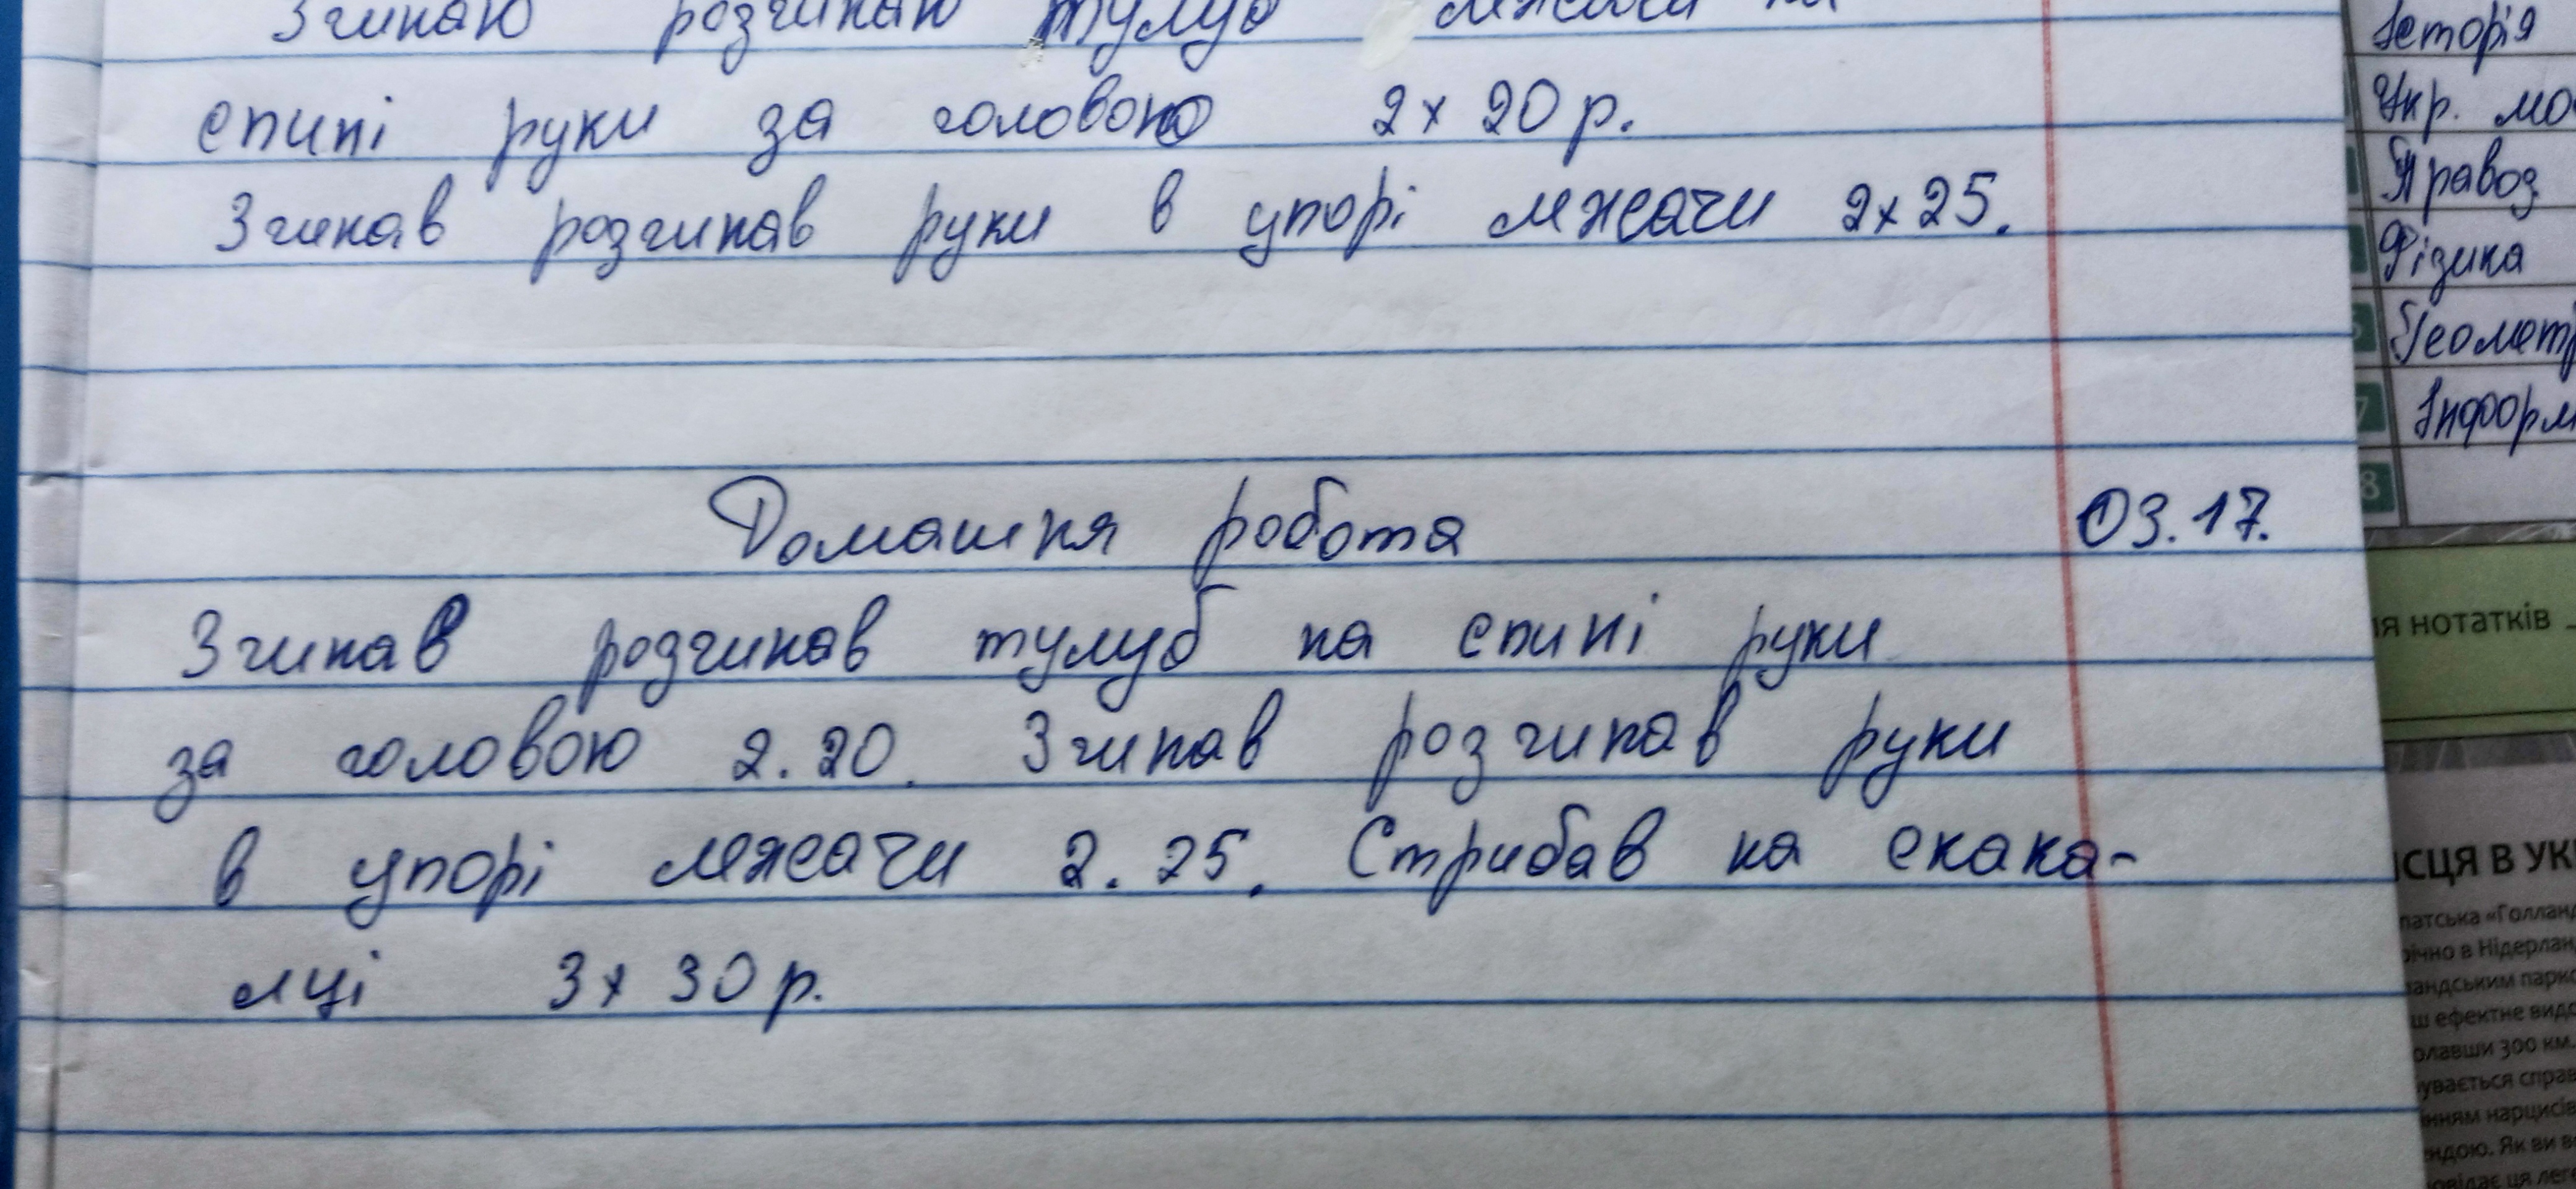 Згинаю розгинаю тулуб лежачи на
спині руки за головою 2х 20 р.
Згинав розгинав руки в упорі лежачи 2х25.
Домашня робота 03.17.
Згинав розгинав тулуб на спині руки
за головою 2.20. Згинав розгинав руки
в упорі лежачи 2.25. Стрибав на скака-
лці 3х 30 р.
Історія
Укр. мо
Правоз
Фізика
Геометр
7 Інформ
8
ля нотатків
ІСЦЯ В УК
патська «Голлан
річно в Нідерлан
ландським парк
ш ефектне видо
олавши 300 км.
увається справ
інням нарцисів
ндою. Як ви в
овідає ця лег